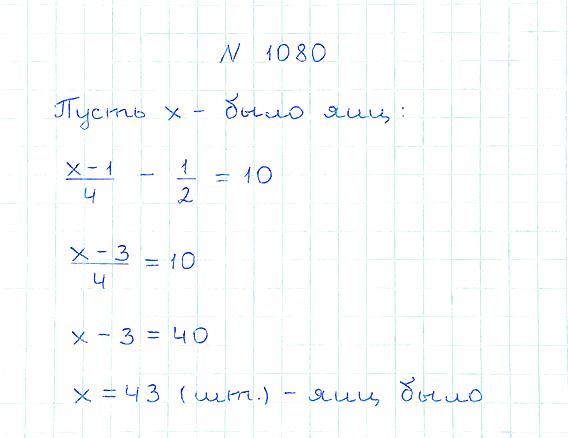 N 1080
Пусть x - было яиц:
x-1/4 - 1/2 = 10
x-3/4 = 10
x-3 = 40
x = 43 (шт.) - яиц было